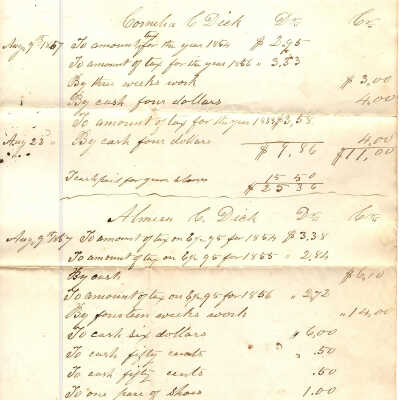 Cornelia C Dick Dr. Cr.
Aug 9th 1857 To amount tax for the year 1854 $ 2,95
To amount of tax for the year 1856 " 3,33
By three weeks work $ 3,00
By cash four dollars 4,00
To amount of tax for the year 1858 $3,58
Aug 23 " By cash four dollars 4,00
$ 9,86 $11,00
To cash paid for 15 50
$ 25 36
Almira C. Dick Dr. Cr.
Aug 9th 1857 To amount of tax on Ex. 95 for 1854 $3,38
To amount of tax on Ex 95 for 1855 " 2,84
By cash $6,10
To amount of tax on Ex. 95 for 1856 " 2,72
By fourteen weeks work " 14,00
To cash six dollars " 6,00
To cash fifty cents " .50
To cash fifty cents .50
To one pare of Shoes 1.00